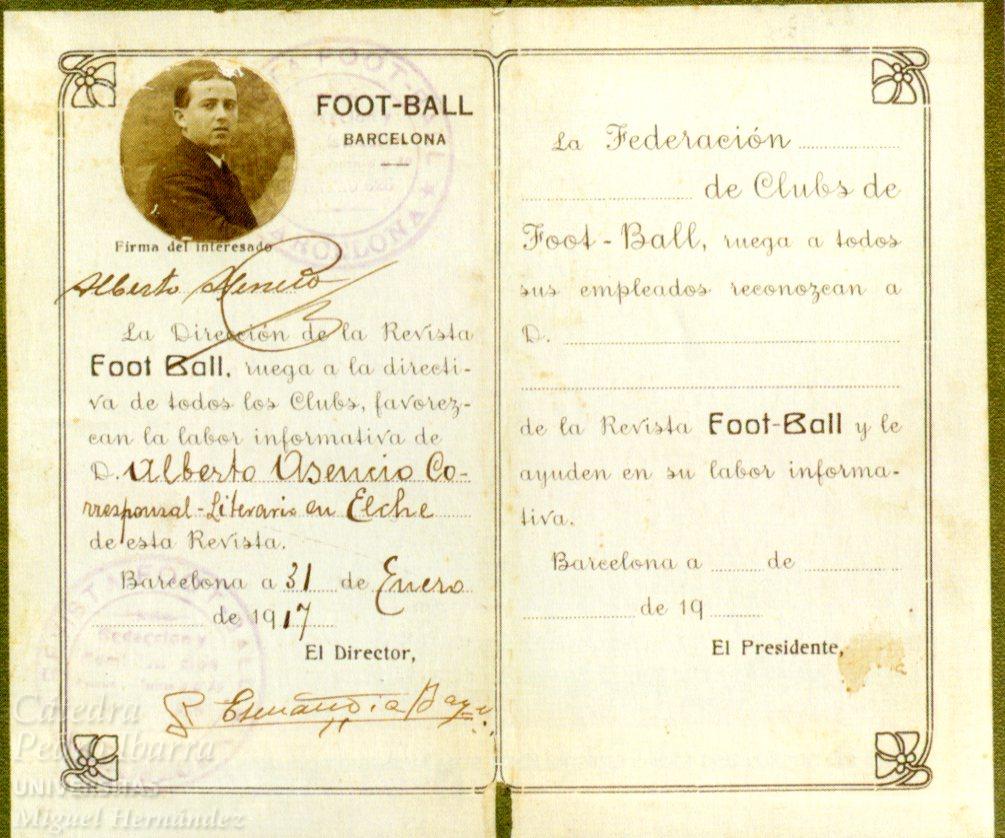 FOOT-BALL
BARCELONA
Firma del interesado
Alberto Asencio
La Dirección de la Revista
Foot Ball, ruega a la directi-
va de todos los Clubs, favorez-
can la labor informativa de
D. Alberto Asencio Co-
rresponsal-Literario en Elche
de esta Revista.
Barcelona a 31 de Enero
de 1917
El Director,
La Federación
de Clubs de
Foot-Ball, ruega a todos
sus empleados reconozcan a
D.
de la Revista Foot-Ball y le
ayuden en su labor informa-
tiva.
Barcelona a de
de 19
El Presidente,
Cátedra
Pedro Ibarra
UNIVERSITAS
Miguel Hernández